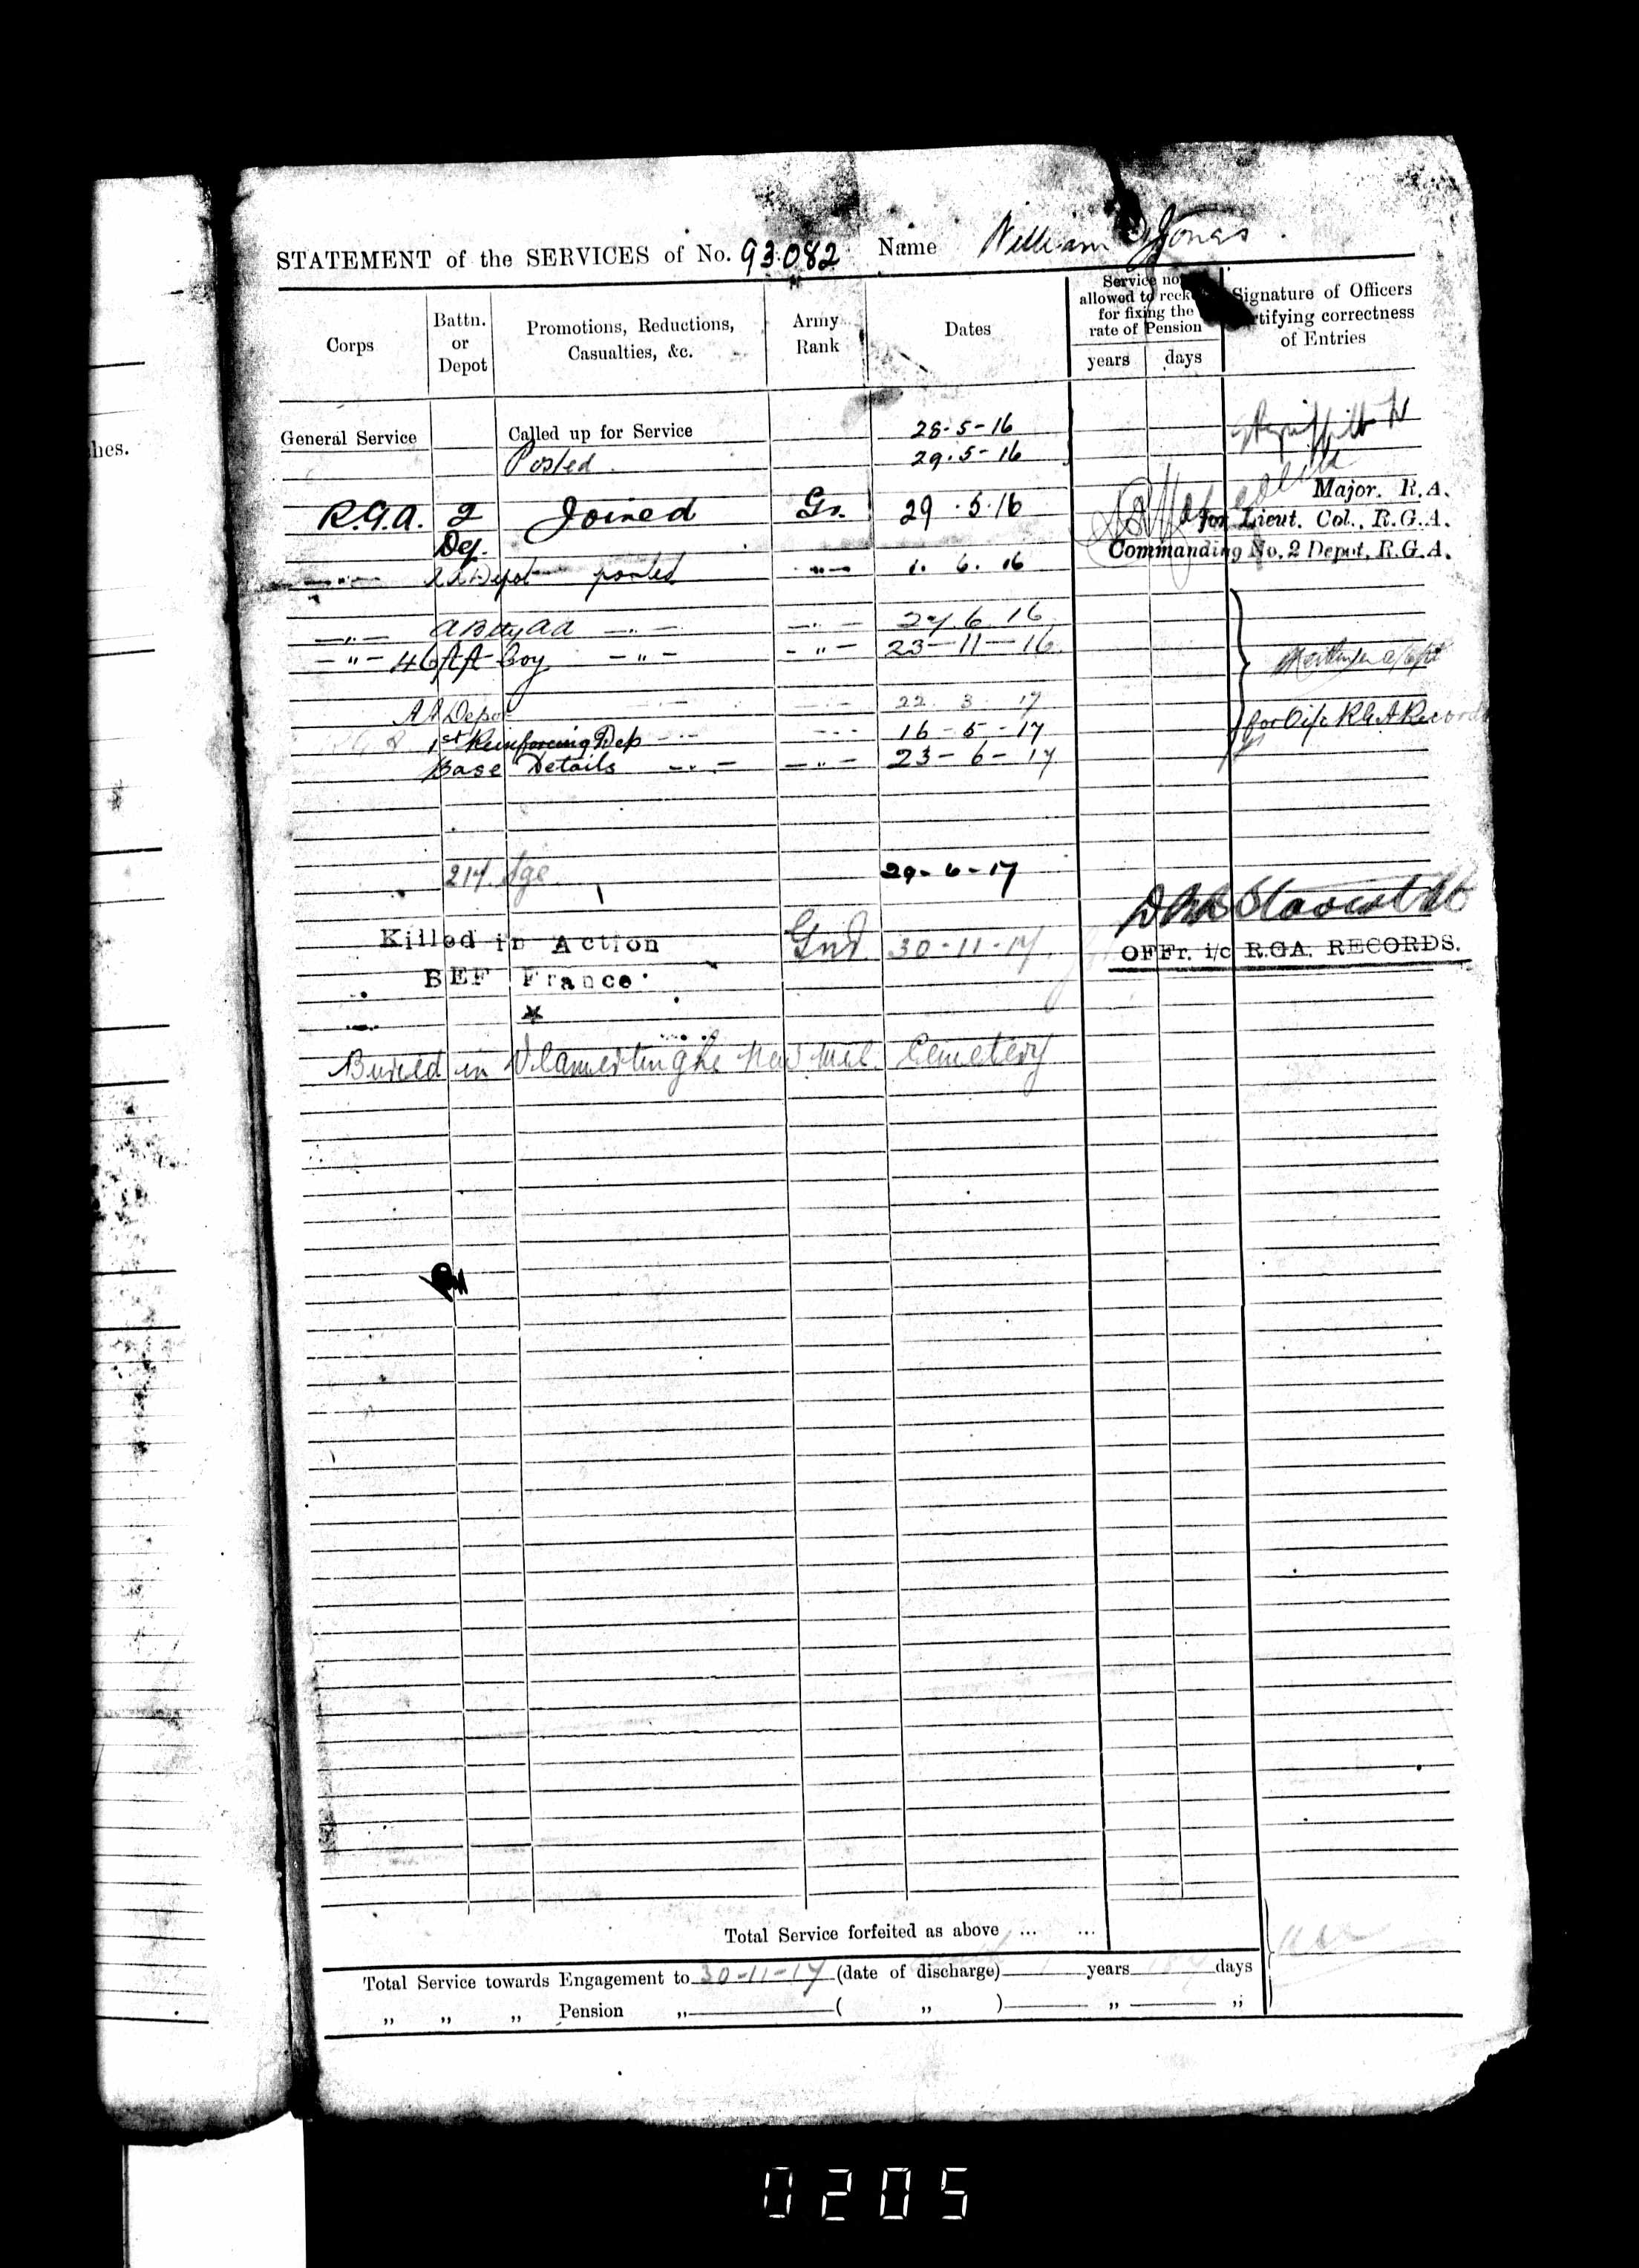 hes.
STATEMENT of the SERVICES of No. 93082 Name William Jones
Corps
Battn. or Depot
Promotions, Reductions, Casualties, &c.
Army Rank
Dates
Service not allowed to reck for fixing the rate of Pension
years days
Signature of Officers rtifying correctness of Entries
General Service Called up for Service 28-5-16
Posted 29.5-16
R.G.A. 2 Joined Gr. 29.5.16
Major. R.A.
Dep.
for Lieut. Col., R.G.A.
Commanding No. 2 Depot, R.G.A.
—"— Depot posted —"— 1. 6. 16
—"— A Btty AA —"— —"— 24 6 16
—"— 46 AA Coy —"— —"— 23-11-16
AA Depot —"— —"— 22 3 17
1st Reinforcing Dep —"— —"— 16-5-17
for O i/c RGA Records
Base Details —"— —"— 23-6-17
217. Sge 29-6-17
Killed in Action Gnr. 30-11-17
OFFr. i/c R.G.A. RECORDS.
BEF France
Buried in Vlamertinghe New Mil. Cemetery
Total Service forfeited as above ... ...
Total Service towards Engagement to 30-11-17 (date of discharge) 1 years 187 days
" " " Pension " ( " ) " "
0205